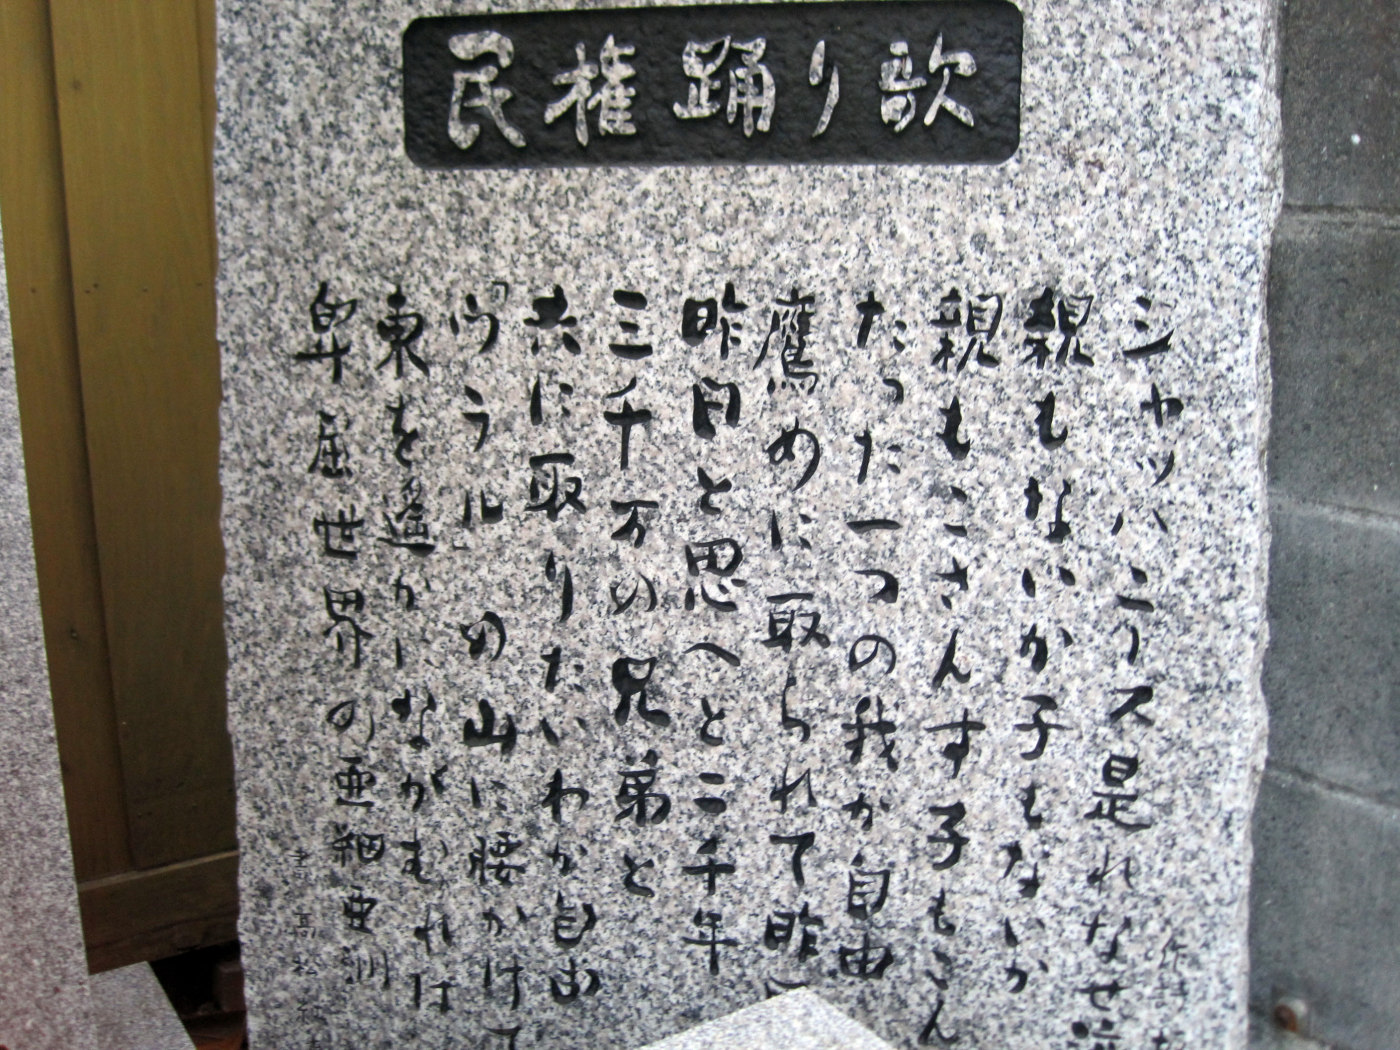 民権踊り歌
シャッハニース是れなせ泣
親もないか子もないか
親もこさんす子もこん
たった一つの我か自由
鷹めに取られて昨
昨日と思へと二千年
三千万の兄弟と
共に取りたいわか自由
「ウラル」の山に腰かけて
東を遥かにながむれは
卑屈世界の亜細亜洲
書 高松